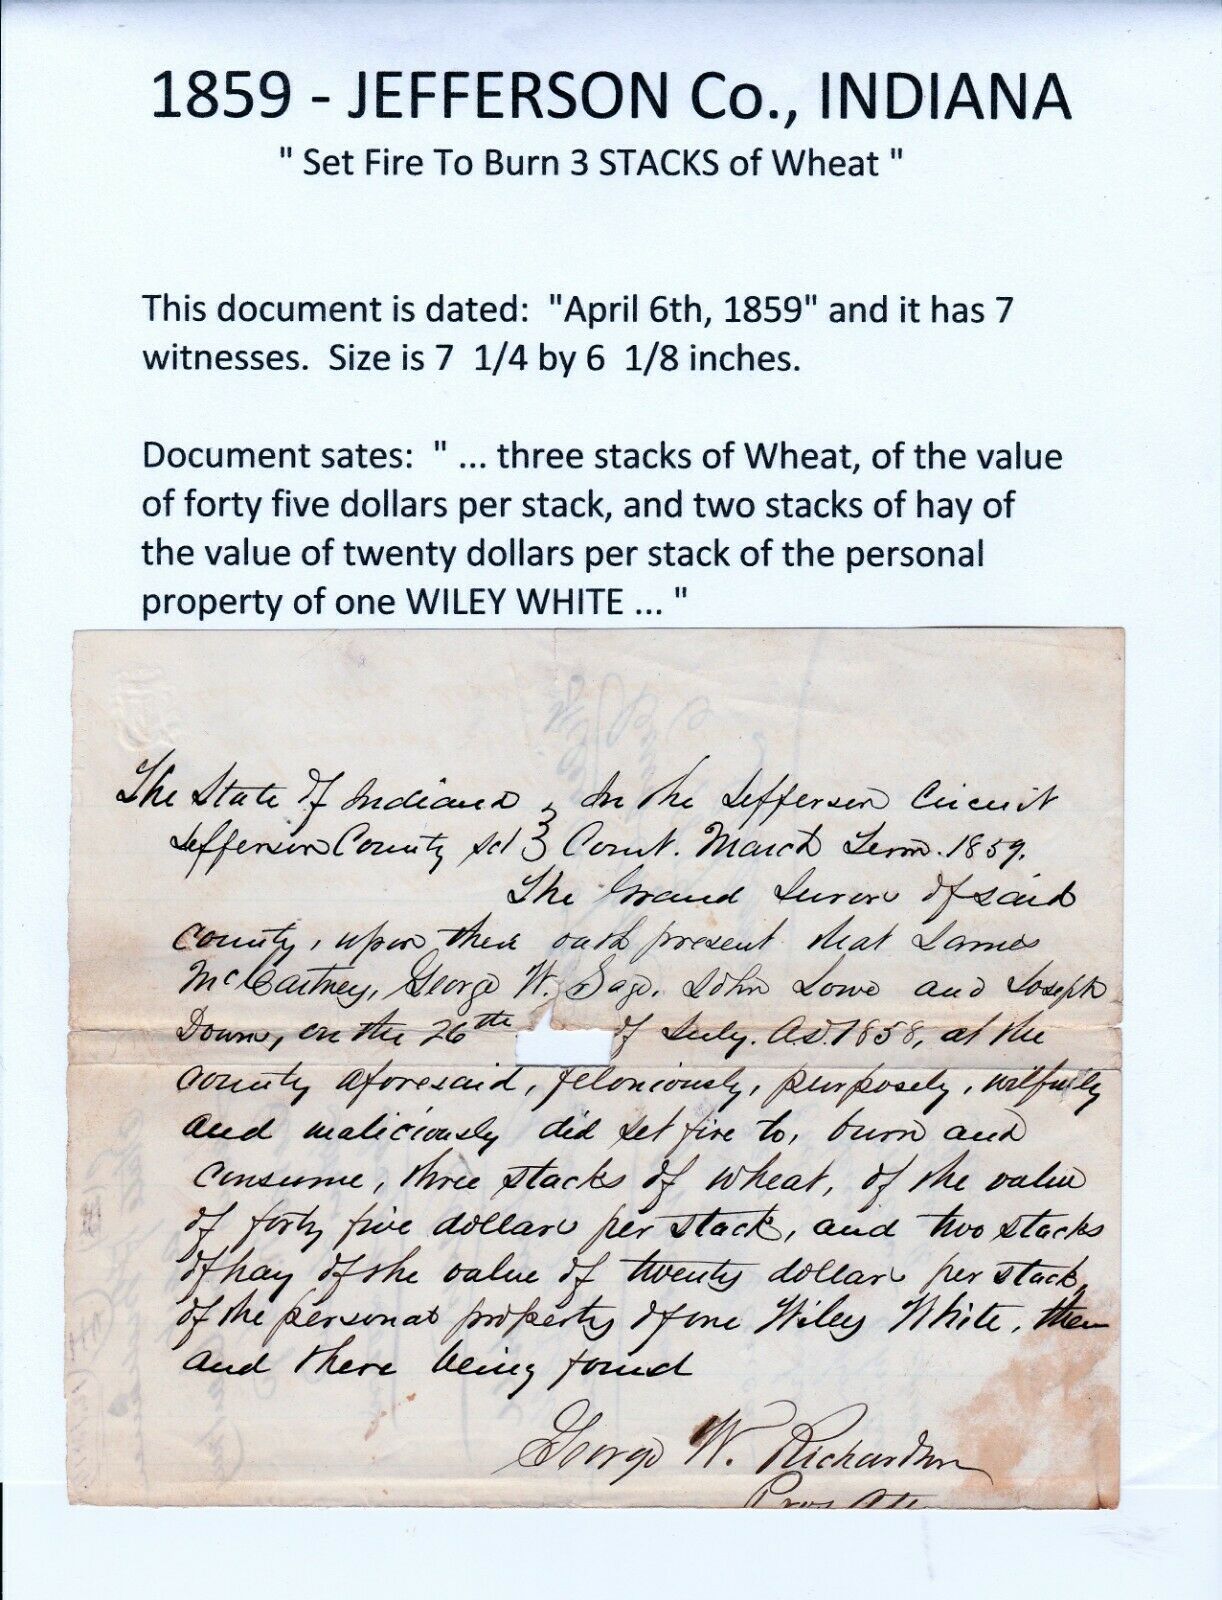 1859 - JEFFERSON Co., INDIANA
" Set Fire To Burn 3 STACKS of Wheat "
This document is dated:  "April 6th, 1859" and it has 7
witnesses.  Size is 7  1/4 by 6  1/8 inches.
Document sates:  " ... three stacks of Wheat, of the value
of forty five dollars per stack, and two stacks of hay of
the value of twenty dollars per stack of the personal
property of one WILEY WHITE ... "
The State of Indiana } In the Jefferson Circuit
Jefferson County Sct } Court. March Term. 1859.
The Grand Jurors of said
county, upon their oath present that James
McCartney, George W. Sage, John Lowe and Joseph
Down, on the 26th of July. A.D. 1858, at the
county aforesaid, feloniously, purposely, wilfully
and maliciously did set fire to, burn and
consume, three stacks of wheat, of the value
of forty five dollars per stack, and two stacks
of hay of the value of twenty dollars per stack,
of the personal property of one Wiley White, then
and there being found
George W. Richardson
Pros Att